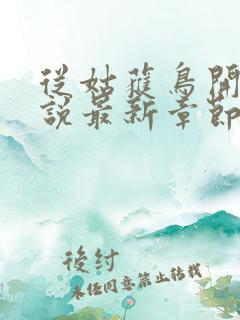 從姑蘇鳥開
說最新章節
後紂
未經同意禁止轉載